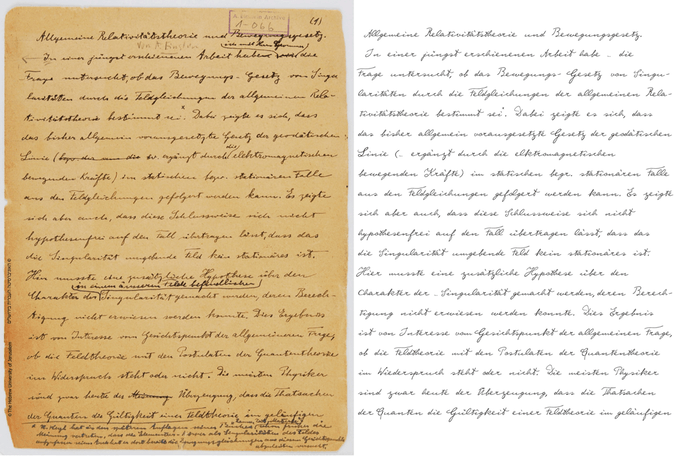 (1)
1-066
Allgemeine Relativitätstheorie und Bewegungsgesetz.
Von A. Einstein
In einer jüngst erschienenen Arbeit haben die
Frage untersucht, ob das Bewegungs-Gesetz von Singu-
laritäten durch die Feldgleichungen der allgemeinen Rela-
tivitätstheorie bestimmt sei. Dabei zeigte es sich, dass
das bisher allgemein vorausgesetzte Gesetz der geodätischen
Linie (bezw. ergänzt durch die elektromagnetischen
bewegenden Kräfte) im statischen bezw. stationären Falle
aus den Feldgleichungen gefolgert werden kann. Es zeigte
sich aber auch, dass diese Schlussweise sich nicht
hypothesenfrei auf den Fall übertragen lässt, dass das
die Singularität umgebende Feld kein stationäres ist.
Hier musste eine zusätzliche Hypothese über den
in einem äusseren Felde befindlichen
Charakter der Singularität gemacht werden, deren Berech-
tigung nicht erwiesen werden konnte. Dies Ergebnis
ist von Interesse vom Gesichtspunkt der allgemeineren Frage,
ob die Feldtheorie mit den Postulaten der Quantentheorie
im Widerspruch steht oder nicht. Die meisten Physiker
sind zwar heute der Überzeugung, dass die Thatsachen
der Quanten die Gültigkeit einer Feldtheorie im geläufigen
© The Hebrew University of Jerusalem
Allgemeine Relativitätstheorie und Bewegungsgesetz.
In einer jüngst erschienenen Arbeit habe - die
Frage untersucht, ob das Bewegungs-Gesetz von Singu-
laritäten durch die Feldgleichungen der allgemeinen Rela-
tivitätstheorie bestimmt sei. Dabei zeigte es sich, dass
das bisher allgemein vorausgesetzte Gesetz der geodätischen
Linie (- ergänzt durch die elektromagnetischen
bewegenden Kräfte) im statischen bezr. stationären Falle
aus den Feldgleichungen gefolgert werden kann. Es zeigte
sich aber auch, dass diese Schlussweise sich nicht
hypothesenfrei auf den Fall übertragen lässt, dass das
die Singularität umgebende Feld kein stationäres ist.
Hier musste eine zusätzliche Hypothese über den
Charakter der - Singularität gemacht werden, deren Berech-
tigung nicht erwiesen werden konnte. Dies Ergebnis
ist von Interesse vom Gesichtspunkt der allgemeinen Frage,
ob die Feldtheorie mit den Postulaten der Quantentheorie
im Wiederspruch steht oder nicht. Die meisten Physiker
sind zwar heute der Überzeugung, dass die Thatsachen
der Quanten die Gültigkeit einer Feldtheorie im geläufigen